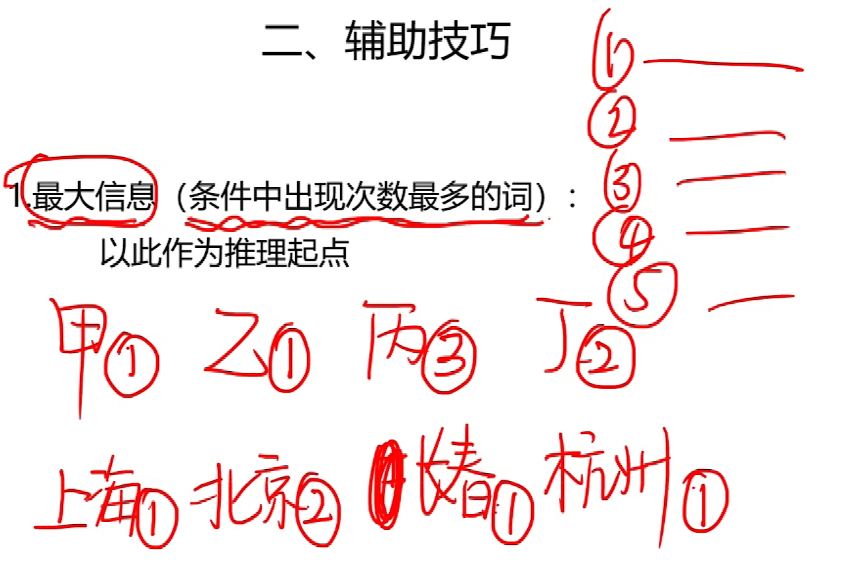 二、辅助技巧
①
②
1.最大信息（条件中出现次数最多的词）：
③
④
以此作为推理起点
⑤
甲① 乙① 丙③ 丁②
上海① 北京② 长春① 杭州①